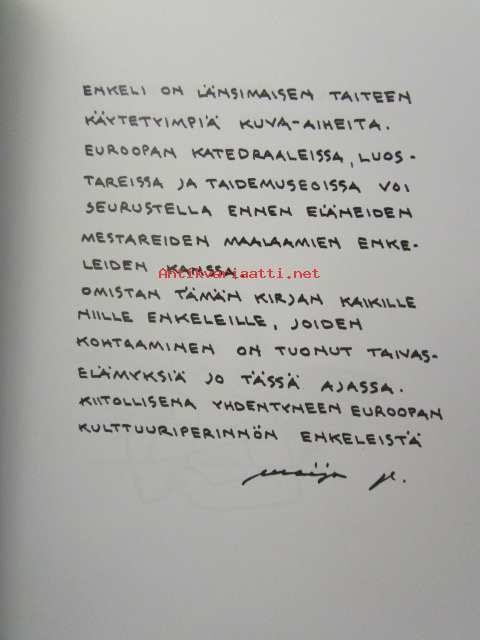 ENKELI ON LÄNSIMAISEN TAITEEN
KÄYTETYIMPIÄ KUVA-AIHEITA.
EUROOPAN KATEDRAALEISSA, LUOS-
TAREISSA JA TAIDEMUSEOISSA VOI
SEURUSTELLA ENNEN ELÄNEIDEN
MESTAREIDEN MAALAAMIEN ENKE-
LEIDEN KANSSA.
Antikvariaatti.net
OMISTAN TÄMÄN KIRJAN KAIKILLE
NIILLE ENKELEILLE, JOIDEN
KOHTAAMINEN ON TUONUT TAIVAS-
ELÄMYKSIÄ JO TÄSSÄ AJASSA.
KIITOLLISENA YHDENTYNEEN EUROOPAN
KULTTUURIPERINNÖN ENKELEISTÄ
maija p.